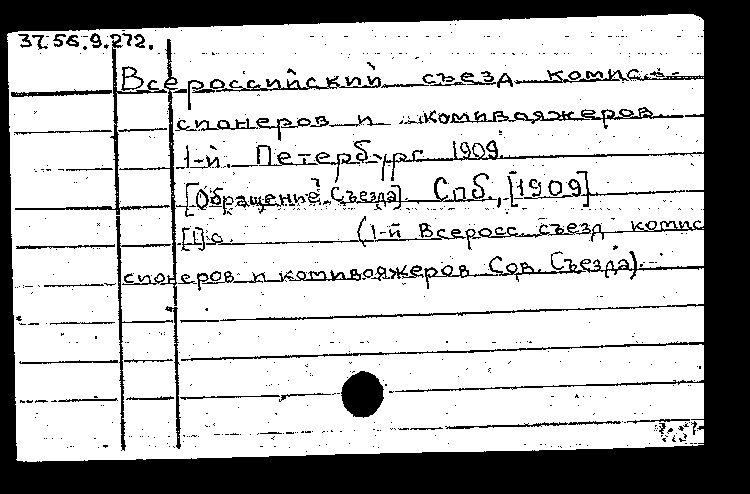 37.56.9.272.
Всероссийский съезд комис-
сионеров и коммивояжеров
1-й. Петербург 1909
[Обращение Съезда]. Спб., [1909]
[1] с. (1-й Всеросс. съезд комис
сионеров и комивояжеров Сов. Съезда).